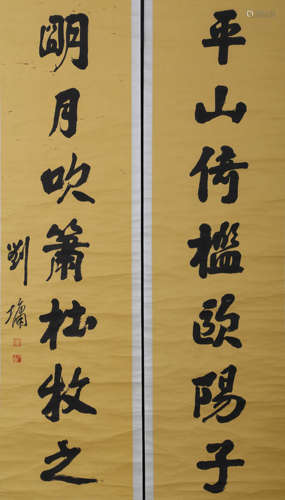 平山倚檻歐陽子
明月吹簫杜牧之
劉墉